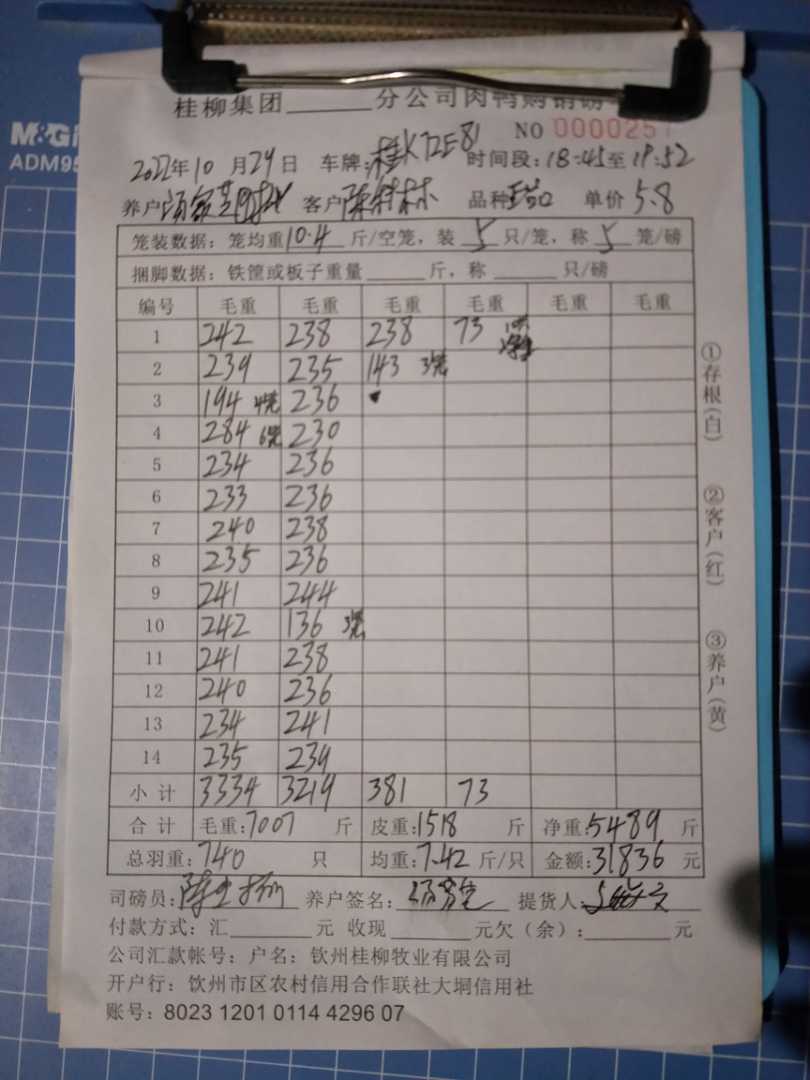 M&G
ADM95
桂柳集团______分公司肉鸭购销磅
NO 0000257
2022年10月29日 车牌:桂K72E81 时间段:18:45至19:52
养户 客户陈 林 品种 单价5.8
笼装数据:笼均重10.4斤/空笼,装5只/笼,称5笼/磅
捆脚数据:铁筐或板子重量______斤,称______只/磅
编号 毛重 毛重 毛重 毛重 毛重 毛重
1 242 238 238 73
2 239 235 143 3笼
3 194 4笼 236
4 284 6笼 230
5 234 236
6 233 236
7 240 238
8 235 236
9 241 244
10 242 136 3笼
11 241 238
12 240 236
13 234 241
14 235 239
小计 3334 3219 381 73
合计 毛重:7007斤 皮重:1518斤 净重:5489斤
总羽重:740只 均重:7.42斤/只 金额:31836元
司磅员: 养户签名: 提货人:
付款方式:汇______元 收现______元欠(余):______元
公司汇款帐号:户名:钦州桂柳牧业有限公司
开户行:饮州市区农村信用合作联社大垌信用社
账号:8023 1201 0114 4296 07
①存根(白)
②客户(红)
③养户(黄)